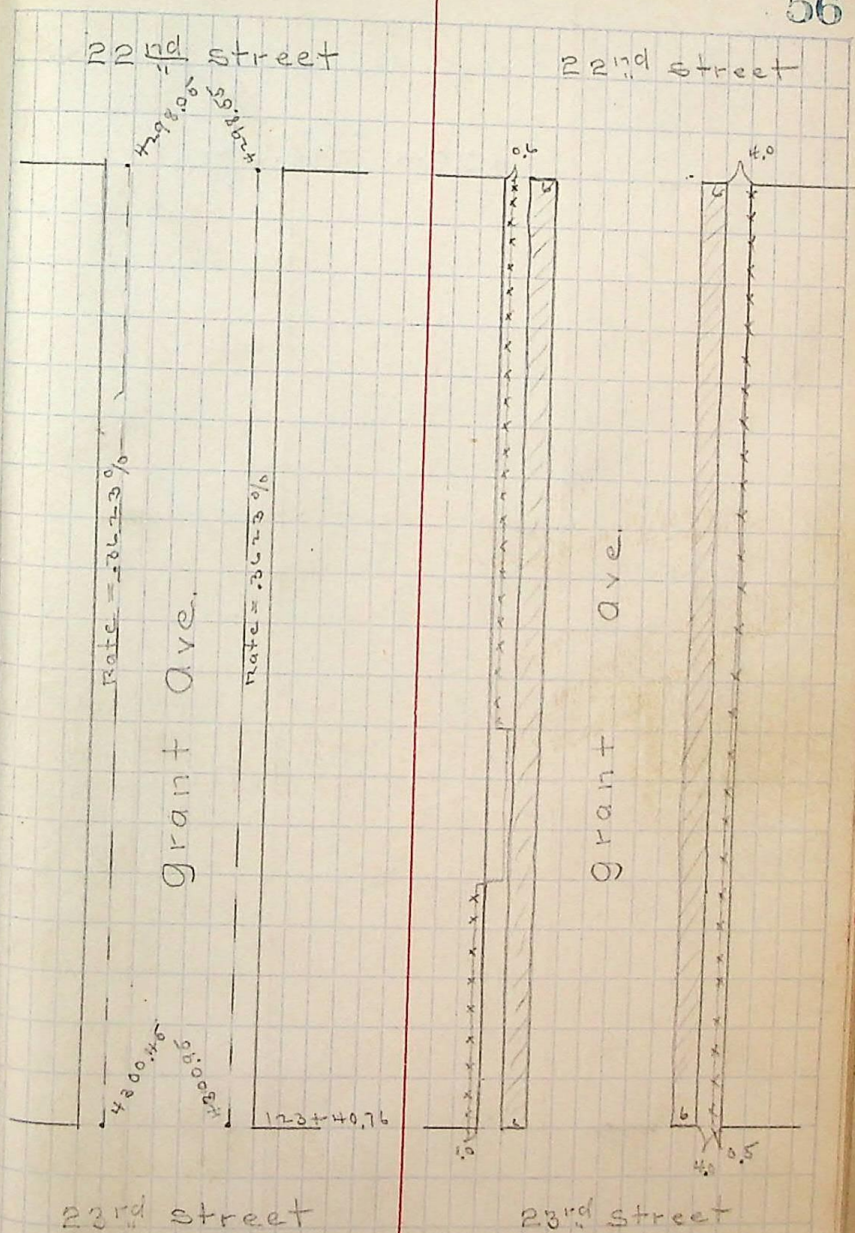 56
22nd Street
4298.05
4298.55
Rate = .3623%
Rate = .3623%
grant Ave.
4300.45
4300.95
123+40.76
23rd Street
22nd Street
0.5
4.0
6
grant ave.
6
4.0
0.5
23rd Street